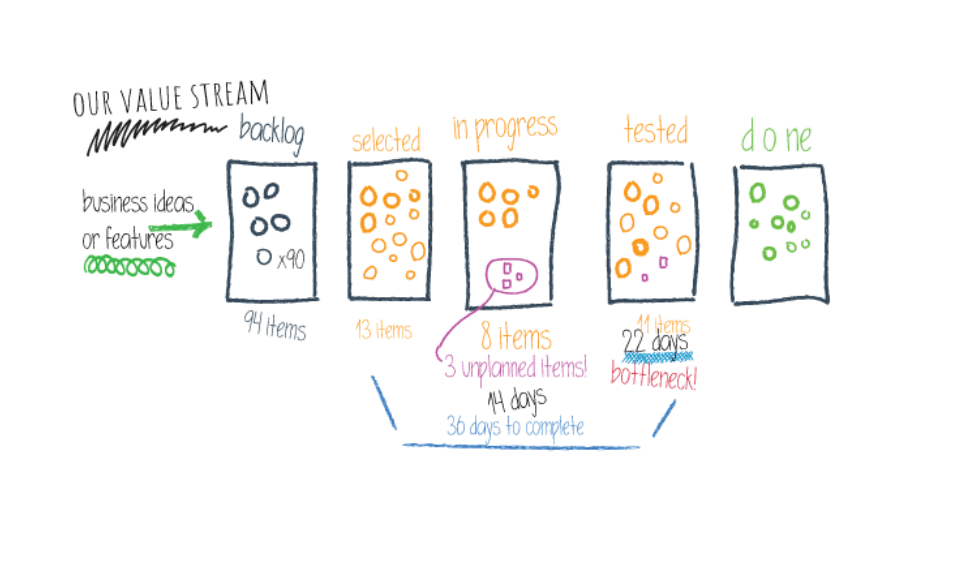 OUR VALUE STREAM
backlog
selected
in progress
tested
done
business ideas
or features
x90
94 items
13 items
8 items
3 unplanned items!
14 days
36 days to complete
11 items
22 days
bottleneck!